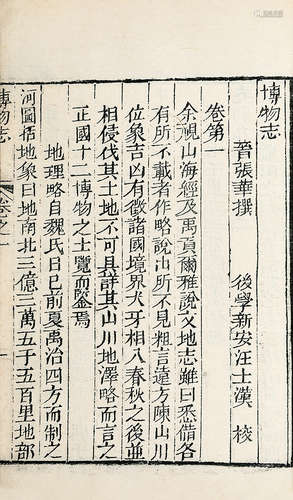 博物志
晉張華撰 後學新安汪士漢 校
卷第一
余視山海經及禹貢爾雅說文地志雖曰悉備各
有所不載者作略說出所不見粗言遠方陳山川
位象吉凶有徵諸國境界犬牙相入春秋之後並
相侵伐其土地不可具詳其山川地澤略而言之
正國十二博物之士覽而鑒焉
地理略自魏氏目已前夏禹治四方而制之
河圖括地象曰地南北三億三萬五千五百里地部
博物志
卷之一